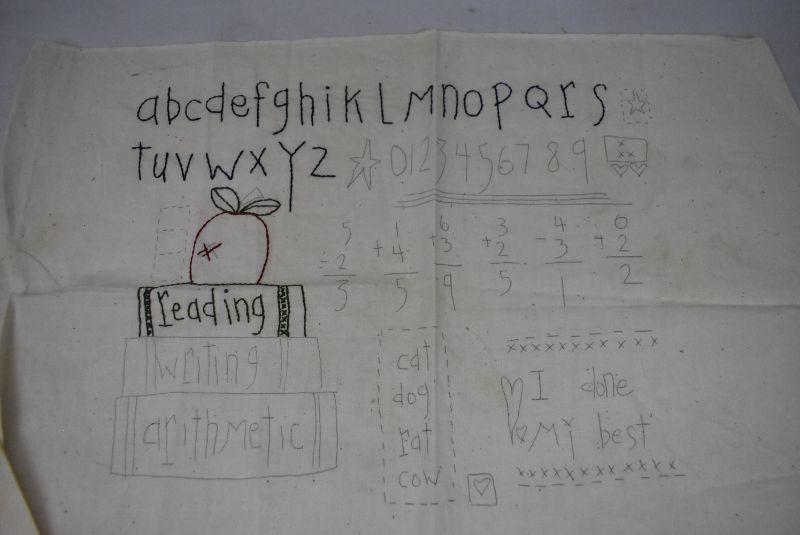 abcdefghikLMnoPQrS
TuvwxYZ 0123456789
5 1 6 3 4 0
-2 +4 +3 +2 -3 +2
3 5 9 5 1 2
reading
writing
arithmetic
cat
dog
rat
cow
xxxxxxxxxxx
I done
My best
xxxxxxxxxxxx